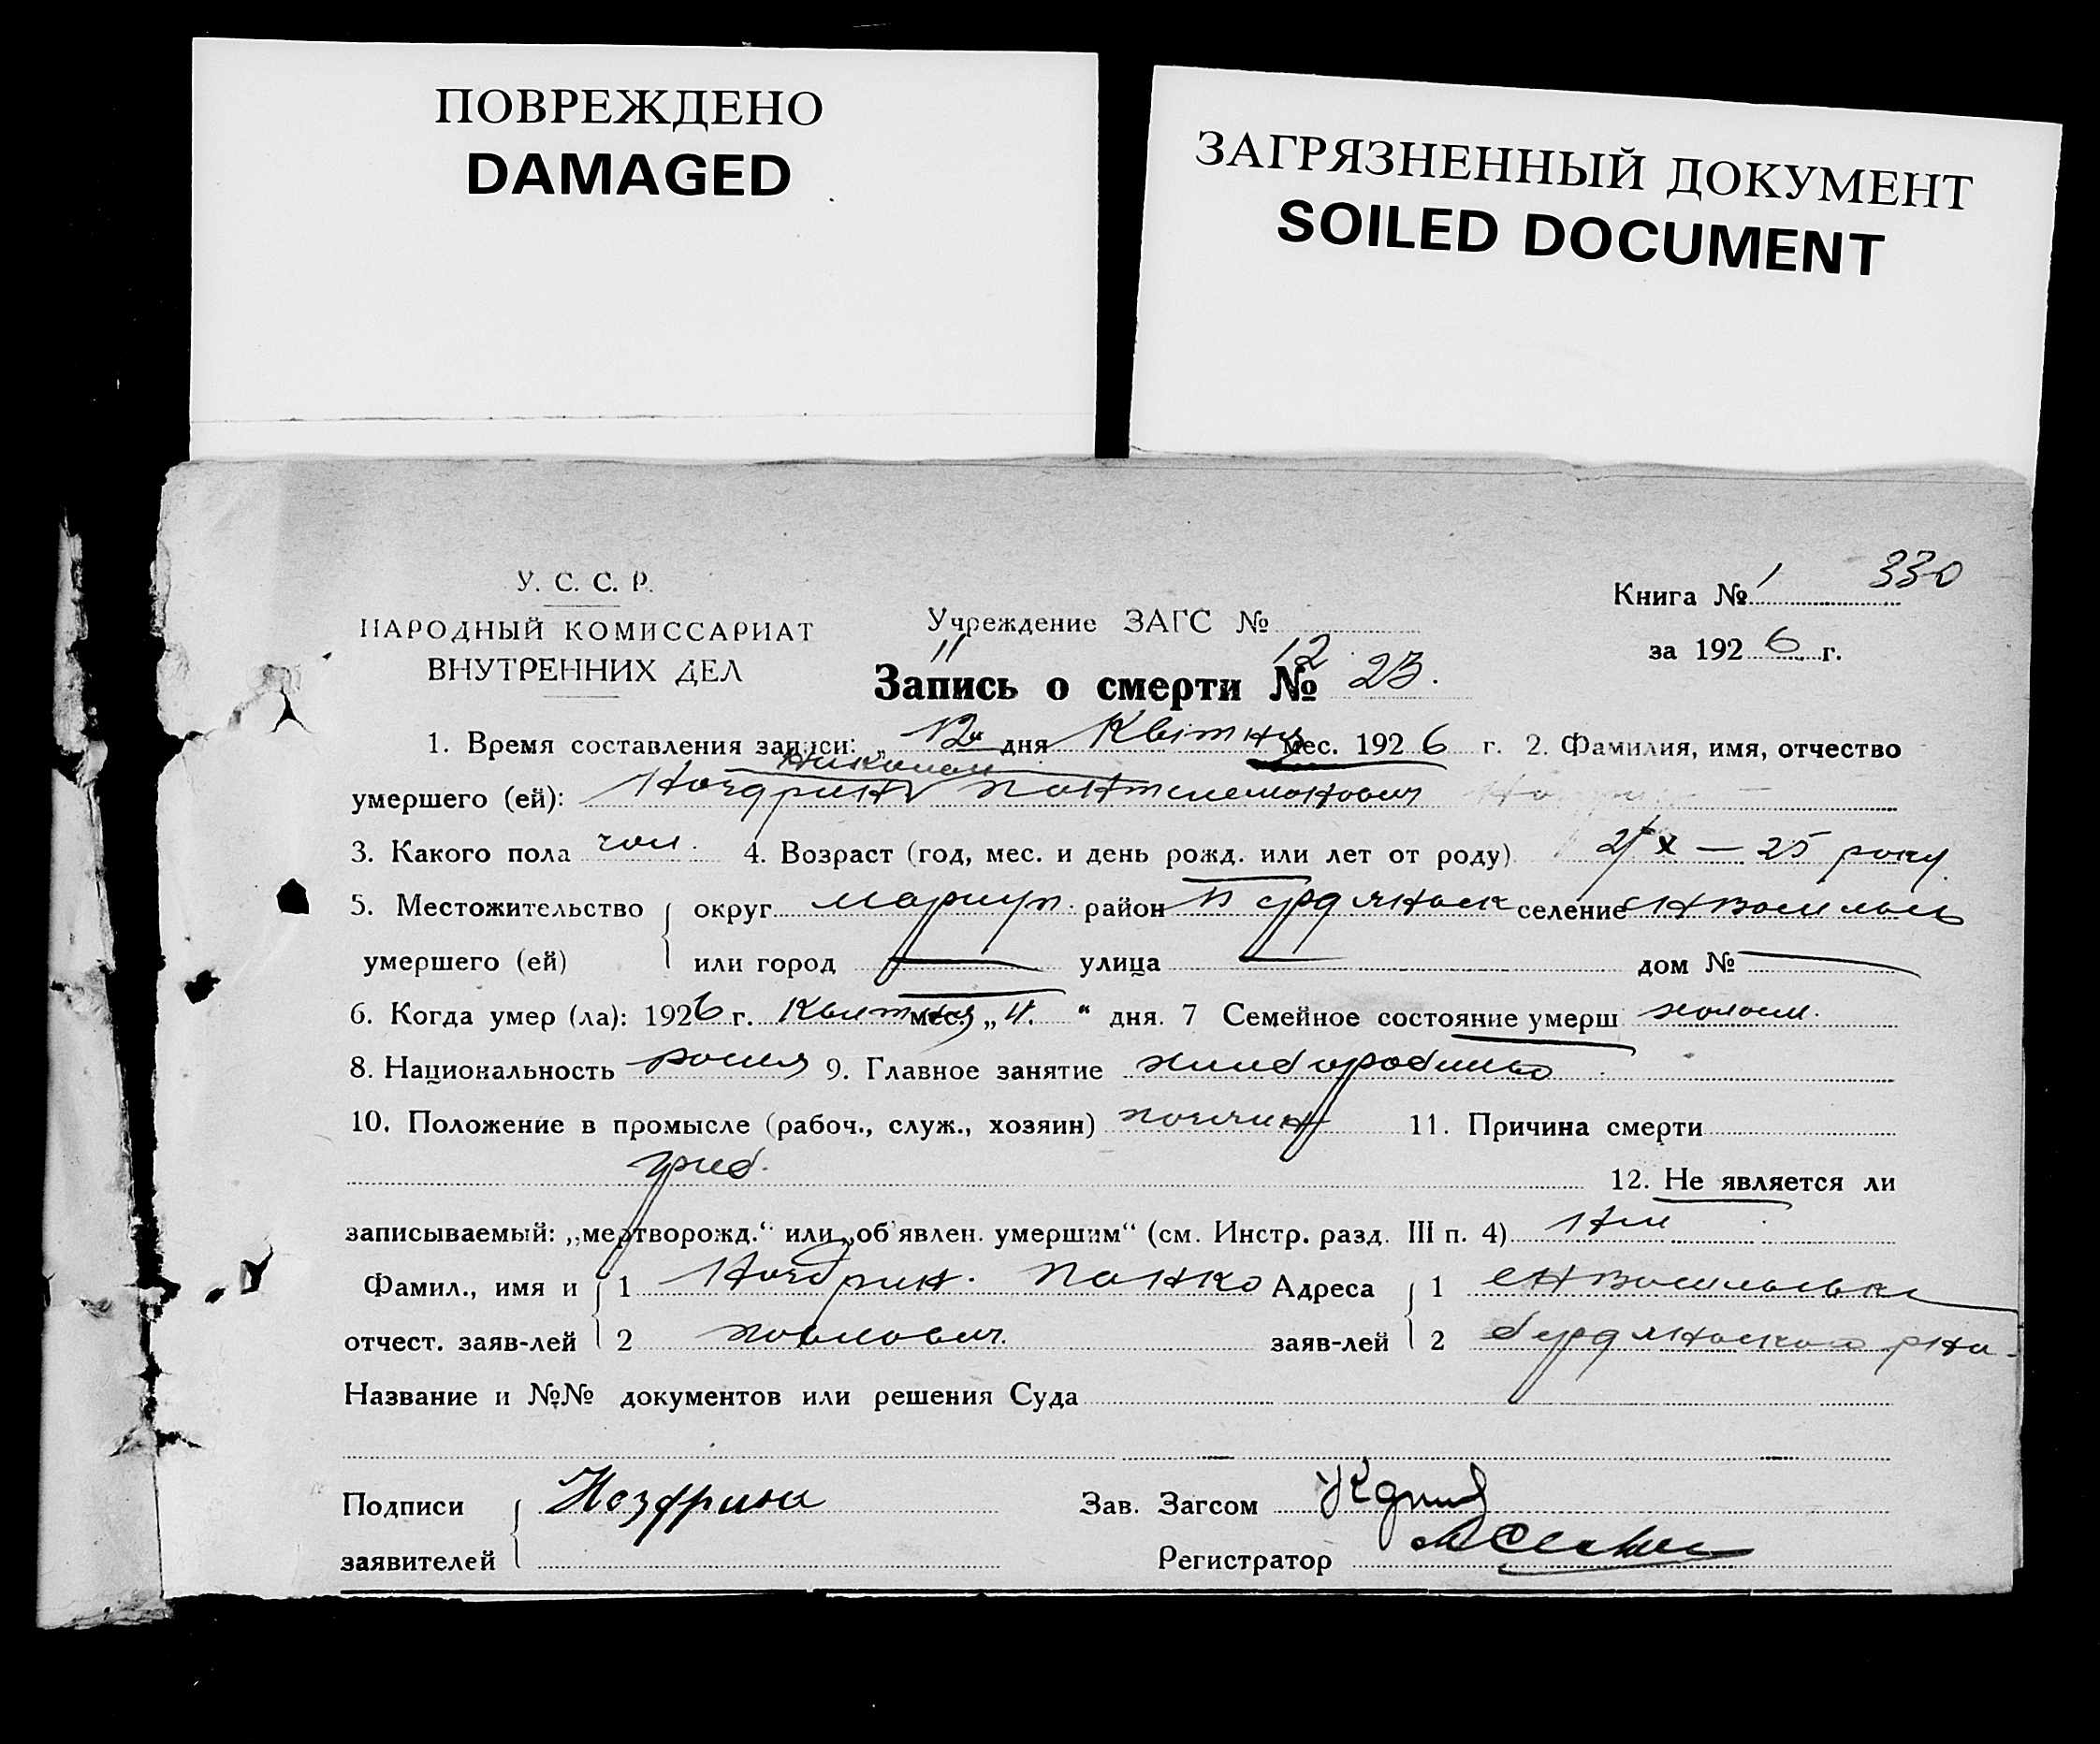 ПОВРЕЖДЕНО
DAMAGED
ЗАГРЯЗНЕННЫЙ ДОКУМЕНТ
SOILED DOCUMENT
330
У. С. С. Р.
НАРОДНЫЙ КОМИССАРИАТ
ВНУТРЕННИХ ДЕЛ
Учреждение ЗАГС №
Книга № 1
за 1926 г.
11 12
Запись о смерти № 23.
1. Время составления записи: „12" дня Квітня мес. 1926 г. 2. Фамилия, имя, отчество
Николай
умершего (ей): Ноздрин Пантелемонович
3. Какого пола чол. 4. Возраст (год, мес. и день рожд. или лет от роду) – 25 року
5. Местожительство округ Мариуп. район Бурдянськ селение
умершего (ей) или город — улица — дом № —
6. Когда умер (ла): 1926 г. Квитня мес. „11." дня. 7 Семейное состояние умерш
8. Национальность 9. Главное занятие хлиборобство
10. Положение в промысле (рабоч., служ., хозяин) 11. Причина смерти
12. Не является ли
записываемый: „мертворожд.“ или „об'явлен. умершим“ (см. Инстр. разд. III п. 4) Ни
Фамил., имя и 1 Ноздрин. Панко Адреса 1
отчест. заяв-лей 2 Павлович. заяв-лей 2 бурдянського р-на.
Название и №№ документов или решения Суда
Подписи Ноздрина Зав. Загсом
заявителей Регистратор